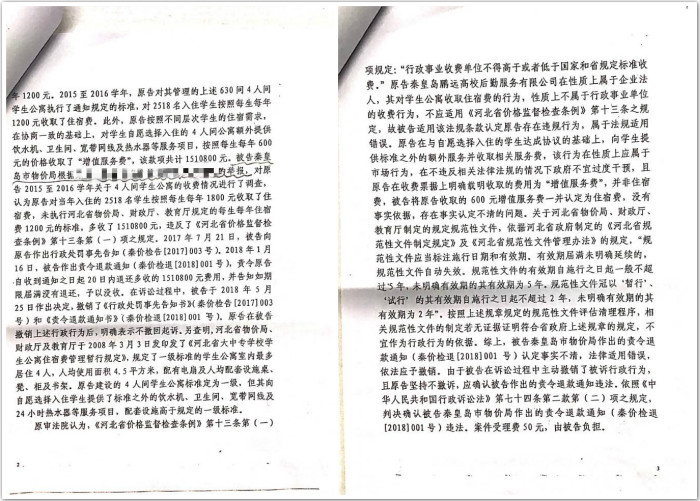 年1200元。2015至2016学年，原告对其管理的上述630间4人间
学生公寓执行了通知规定的标准，对2518名入住学生按照每生每年
1200元收取了住宿费。此外，原告按照不同层次学生的住宿需求，
在协商一致的基础上，对学生自愿选择入住的4人间公寓额外提供
饮水机、卫生间、宽带网线及热水器等服务项目，按照每生每年600
元的价格收取了“增值服务费”，该款项共计1510800元。被告秦皇
岛市物价局根据
的举报，对原
告2015至2016学年关于4人间学生公寓的收费情况进行了调查，
认为原告对当年入住的2518名学生按照每生每年1800元收取了住宿
费，未执行河北省物价局、财政厅、教育厅规定的每生每年住宿
费1200元的标准，多收了1510800元，违反了《河北省价格监督检
查条例》第十三条第（一）项之规定。2017年7月21日，被告向
原告作出行政处罚事先告知（秦价检告【2017】003号）。2018年1月
16日，被告作出责令退款通知（秦价检退[2018]001号），责令原告
自收到通知之日起20日内退还多收的1510800元费用，并告知如期
限届满没有退还，予以没收。在诉讼过程中，被告于2018年5月
25日作出决定，撤销了《行政处罚事先告知书》（秦价检告[2017]003
号）和《责令退款通知书》（秦价检退[2018]001号）。原告在被告
撤销上述行政行为后，明确表示不撤回起诉。另查明，河北省物价局、
财政厅及教育厅于2008年3月3日发印发了《河北省大中专学校学
生公寓住宿费管理暂行规定》，规定了一级标准的学生公寓室内最多
居住4人，人均使用面积4.5平方米，配有电扇及人均配套设施桌、
凳、柜及书架。原告建设的4人间学生公寓标准定为一级，但其向
自愿选择入住学生提供了标准之外的饮水机、卫生间、宽带网线及
24小时热水器等服务项目，配套设施高于规定的一级标准。
原审法院认为，《河北省价格监督检查条例》第十三条第（一）
2
项规定：“行政事业收费单位不得高于或者低于国家和省规定标准收
费。”原告秦皇岛鹏远高校后勤服务有限公司在性质上属于企业法
人，其对学生公寓收取住宿费的行为，性质上不属于行政事业单位
的收费行为，不应适用《河北省价格监督检查条例》第十三条之规
定，故被告适用该法规条款认定原告存在违规行为，属于法规适用
错误。原告在与自愿选择入住的学生达成协议的基础上，向学生提
供标准之外的额外服务并收取相关服务费，该行为在性质上应属于
市场行为，在不违反相关法律法规的情况下政府不宜过度干预，且
原告在收费票据上明确载明收取的费用为“增值服务费”，并非住宿
费，被告将原告收取的600元增值服务费一并认定为住宿费，没有
事实依据，存在事实认定不清的问题。关于河北省物价局、财政厅、
教育厅制定的规定规范性文件，依据河北省政府制定的《河北省规
范性文件制定规定》及《河北省规范性文件管理办法》的规定，“规
范性文件应当标注施行日期和有效期。有效期届满未明确延续的，
规范性文件自动失效。规范性文件的有效期自施行之日起一般不超
过5年，未明确有效期的其有效期为5年。规范性文件冠以‘暂行’、
‘试行’的其有效期自施行之日起不超过2年，未明确有效期的其
有效期为2年”。按照上述规章规定的规范性文件评估清理程序，相
关规范性文件的制定若无证据证明符合省政府上述规章的规定，不
宜作为行政行为的依据。综上，被告秦皇岛市物价局作出的责令退
款通知（秦价检退[2018]001号）认定事实不清，法律适用错误，
依法应予撤销。由于被告在诉讼过程中主动撤销了被诉行政行为，
且原告坚持不撤诉，应确认被告作出的责令退款通知违法。依照《中
华人民共和国行政诉讼法》第七十四条第二款第（二）项之规定，
判决确认被告秦皇岛市物价局作出的责令退款通知（秦价检退
[2018]001号）违法。案件受理费50元，由被告负担。
3